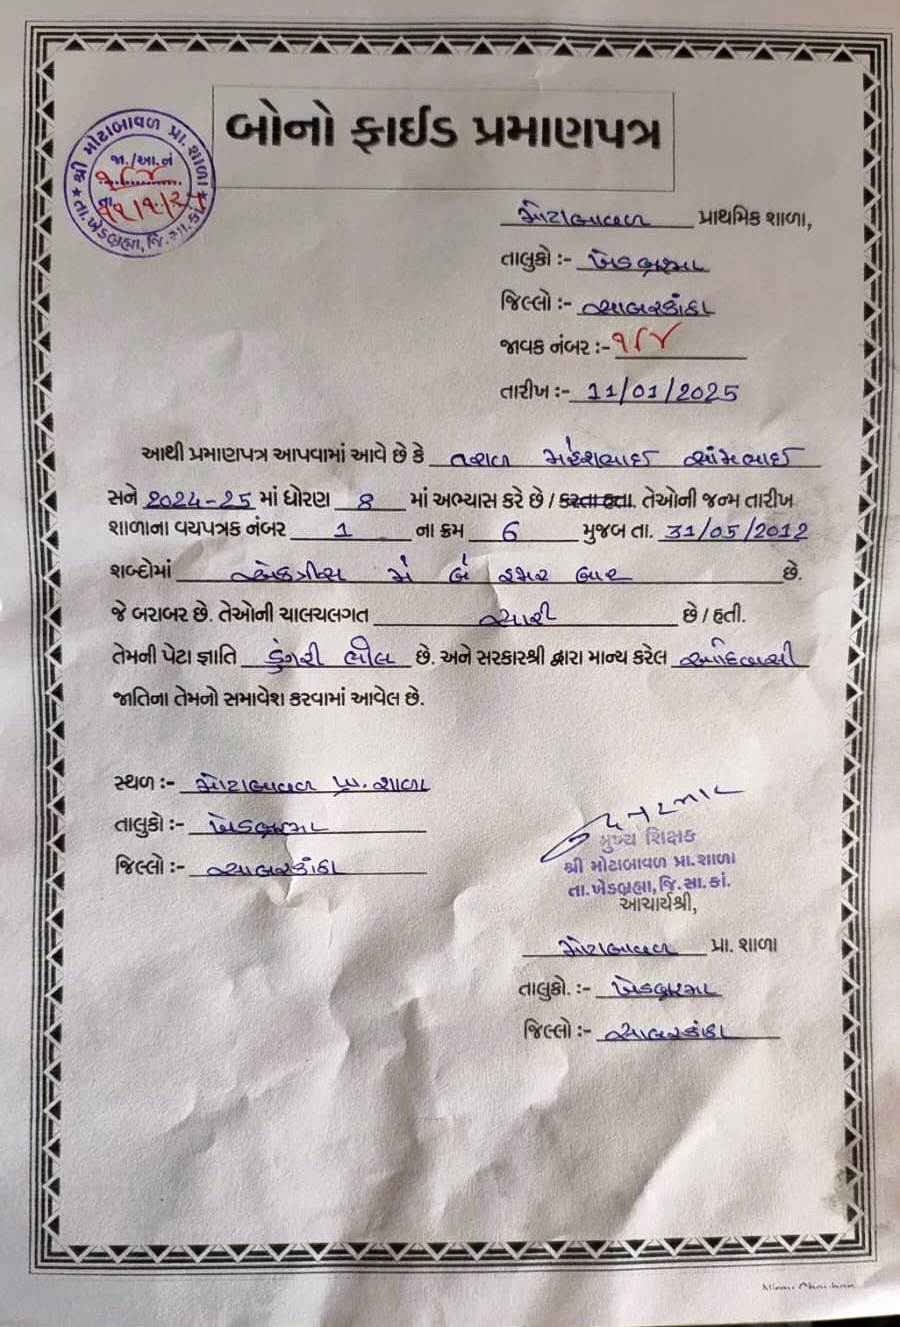 બોનો ફાઈડ પ્રમાણપત્ર
શ્રી મોટાબાવળ પ્રા. શાળા
જા./આ.નં
૧૮૪
તા. ૧૧/૧/૨૫
તા. ખેડબ્રહ્મા, જિ. સા. કાં.
મોટાબાવળ પ્રાથમિક શાળા,
તાલુકો :- ખેડબ્રહ્મા
જિલ્લો :- સાબરકાંઠા
જાવક નંબર :- ૧૮૪
તારીખ :- 11/01/2025
આથી પ્રમાણપત્ર આપવામાં આવે છે કે મહેશભાઈ
સને 2024-25 માં ધોરણ 8 માં અભ્યાસ કરે છે / કરતા હતા. તેઓની જન્મ તારીખ
શાળાના વયપત્રક નંબર 1 ના ક્રમ 6 મુજબ તા. 31/05/2012
શબ્દોમાં એકત્રીસ મે બે હજાર બાર છે.
જે બરાબર છે. તેઓની ચાલચલગત સારી છે / હતી.
તેમની પેટા જ્ઞાતિ ડુંગરી ભીલ છે. અને સરકારશ્રી દ્વારા માન્ય કરેલ આદિવાસી
જાતિના તેમનો સમાવેશ કરવામાં આવેલ છે.
સ્થળ :- મોટાબાવળ પ્રા. શાળા
તાલુકો :- ખેડબ્રહ્મા
જિલ્લો :- સાબરકાંઠા
મુખ્ય શિક્ષક
શ્રી મોટાબાવળ પ્રા. શાળા
તા. ખેડબ્રહ્મા, જિ. સા. કાં.
આચાર્યશ્રી,
મોટાબાવળ પ્રા. શાળા
તાલુકો. :- ખેડબ્રહ્મા
જિલ્લો :- સાબરકાંઠા